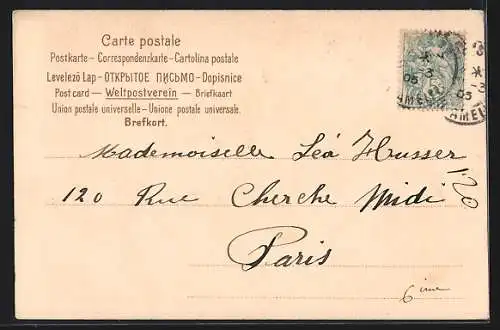 Carte postale
Postkarte - Correspondenzkarte - Cartolina postale
Levelező Lap - ОТКРЫТОЕ ПИСЬМО - Dopisnice
Post card — Weltpostverein — Briefkaart
Union postale universelle - Unione postale universale.
Brefkort.
Mademoiselle Léa Husser
120 Rue Cherche Midi
120
Paris
6 ème